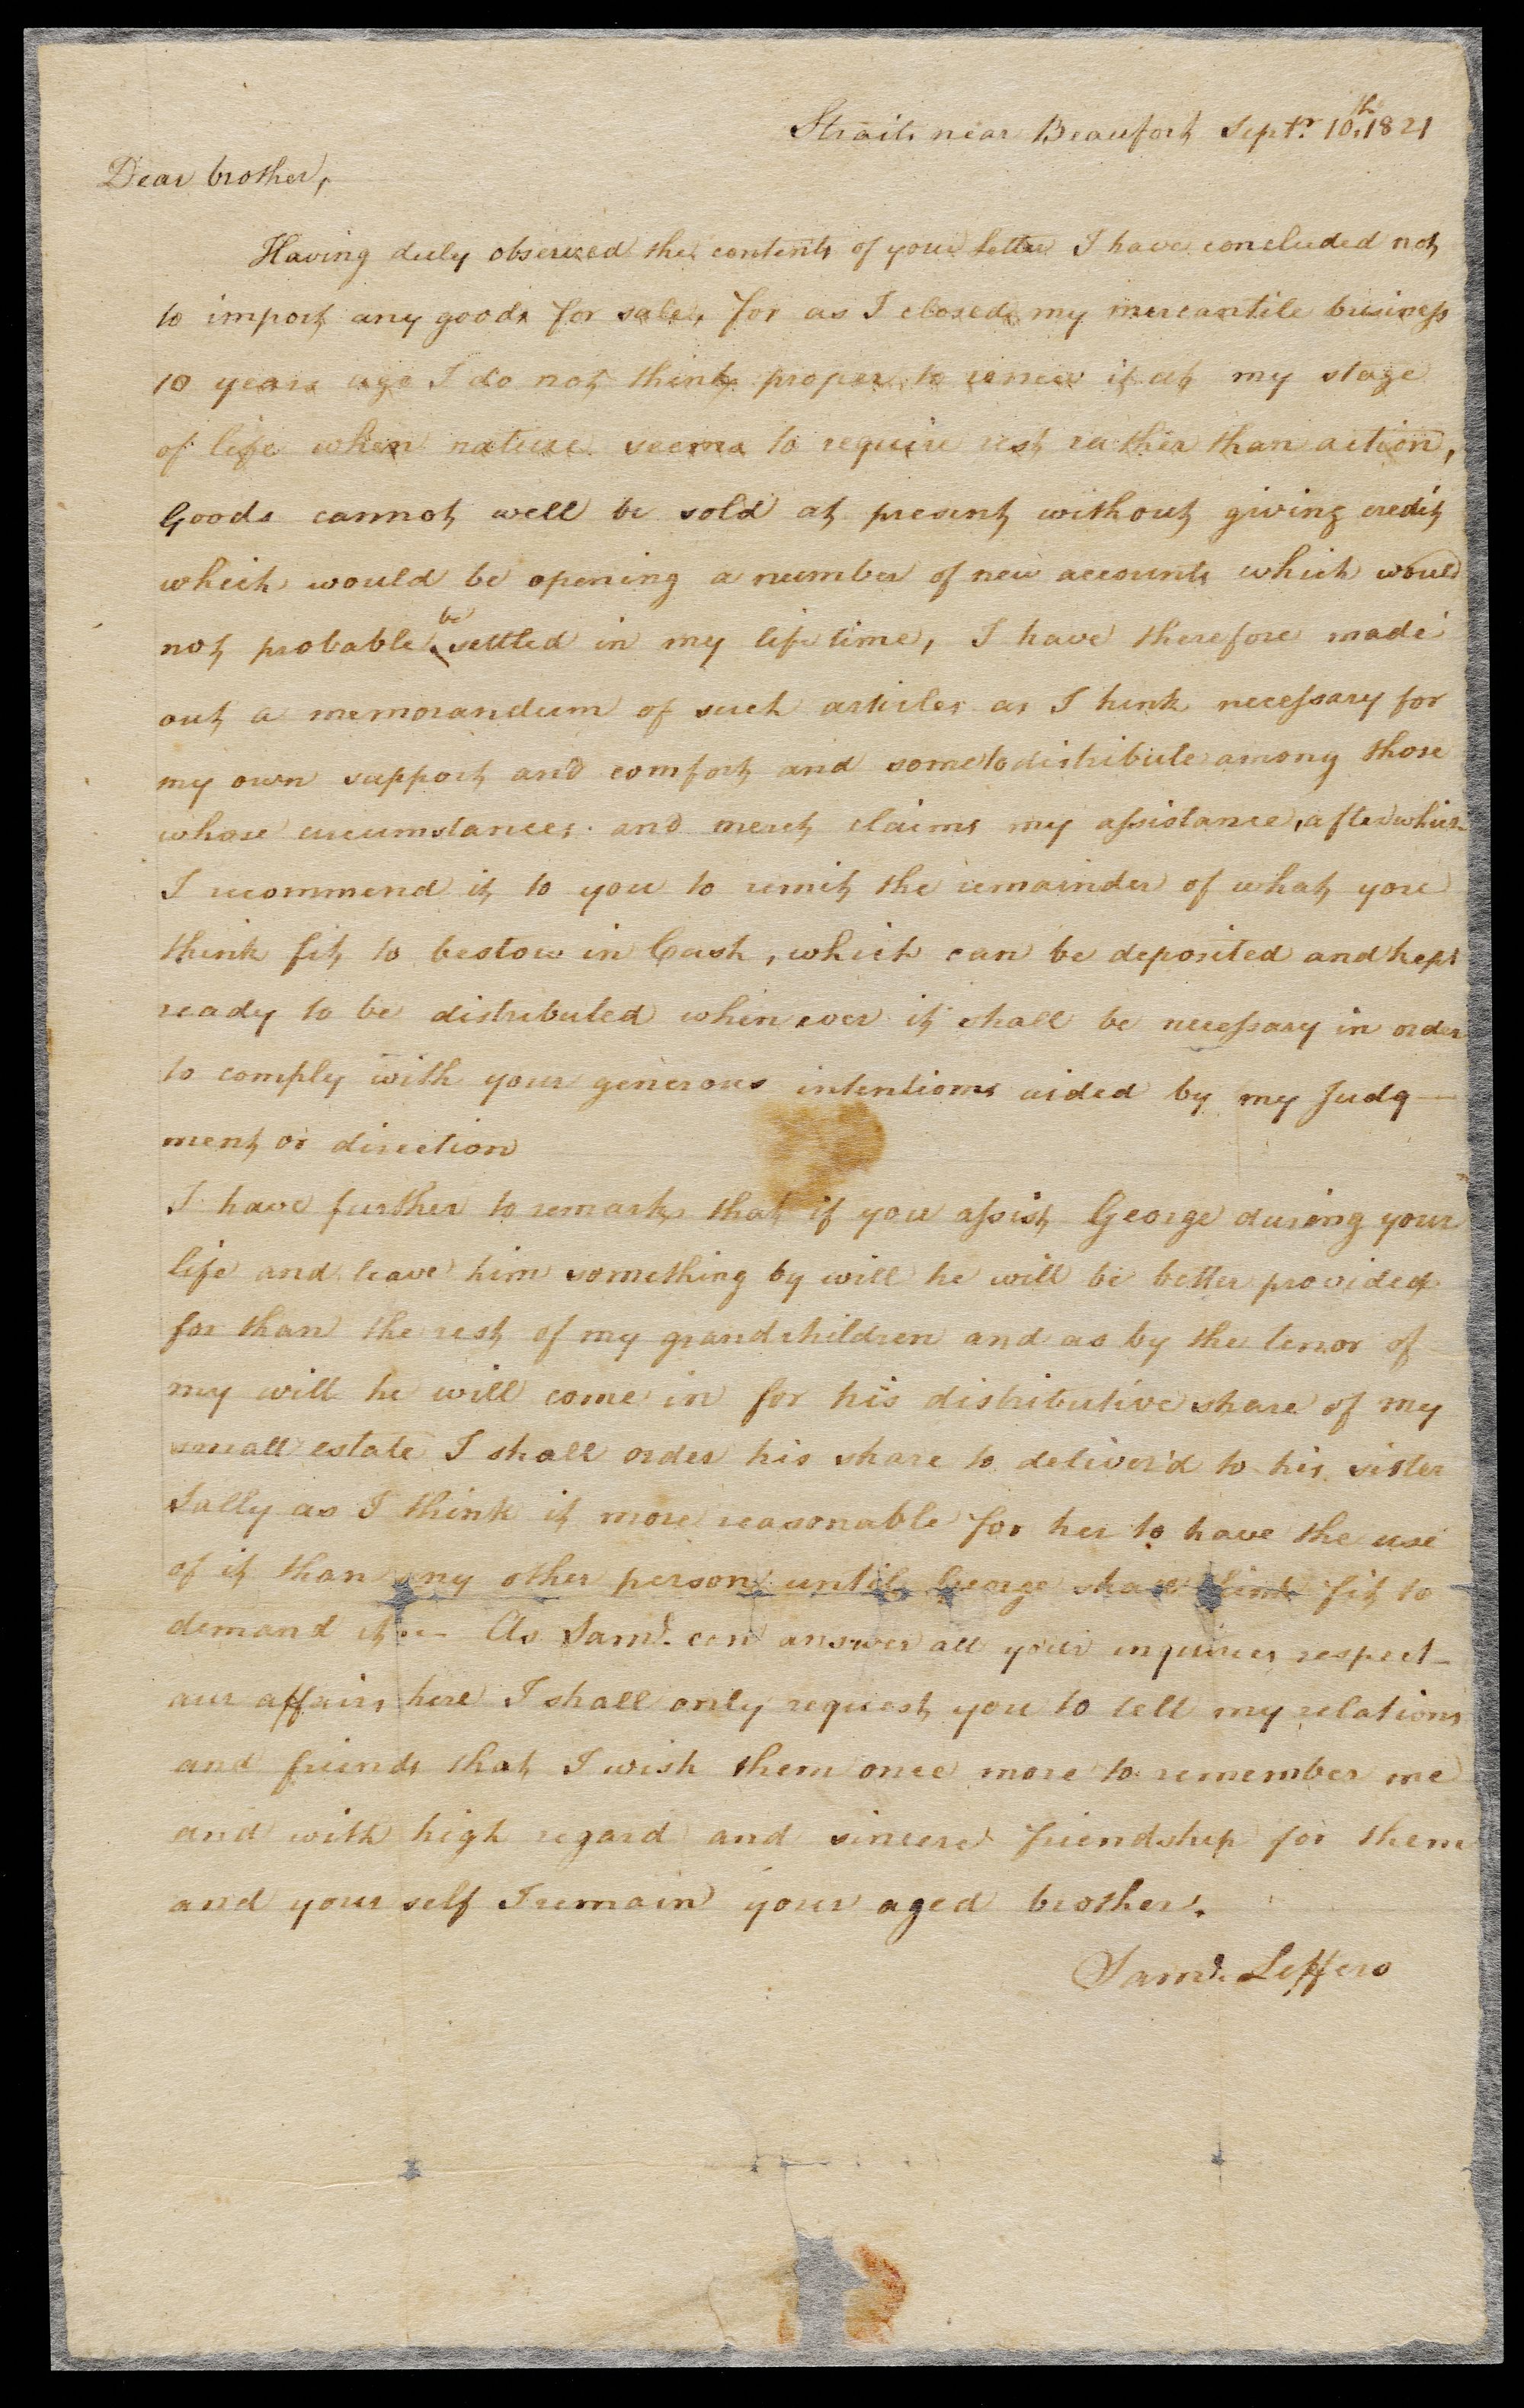 Straits near Beaufort Septr. 10th. 1821
Dear brother,
Having duly observed the contents of your letter I have concluded not
to import any goods for sale, for as I closed my mercantile business
10 years ago I do not think proper to renew it at my stage
of life when nature seems to require rest rather than action,
Goods cannot well be sold at present without giving credit
which would be opening a number of new accounts which would
not probable be settled in my life time, I have therefore made
out a memorandum of such articles as I hink necessary for
my own support and comfort and some to distribute among those
whose circumstances and merit claims my assistance, after which
I recommend it to you to remit the remainder of what you
think fit to bestow in Cash, which can be deposited and kept
ready to be distributed when ever it shall be necessary in order
to comply with your generous intentions aided by my Judg-
ment or direction
I have further to remark that if you assist George during your
life and leave him something by will he will be better provided
for than the rest of my grandchildren and as by the tenor of
my will he will come in for his distributive share of my
small estate I shall order his share to deliver'd to his sister
Sally as I think it more reasonable for her to have the use
of it than any other person until George shall think fit to
demand it. - As Saml. can answer all your inquiries respect-
our affairs here I shall only request you to tell my relations
and friends that I wish them once more to remember me
and with high regard and sincere friendship for them
and your self I remain your aged brother.
Saml. Leffers